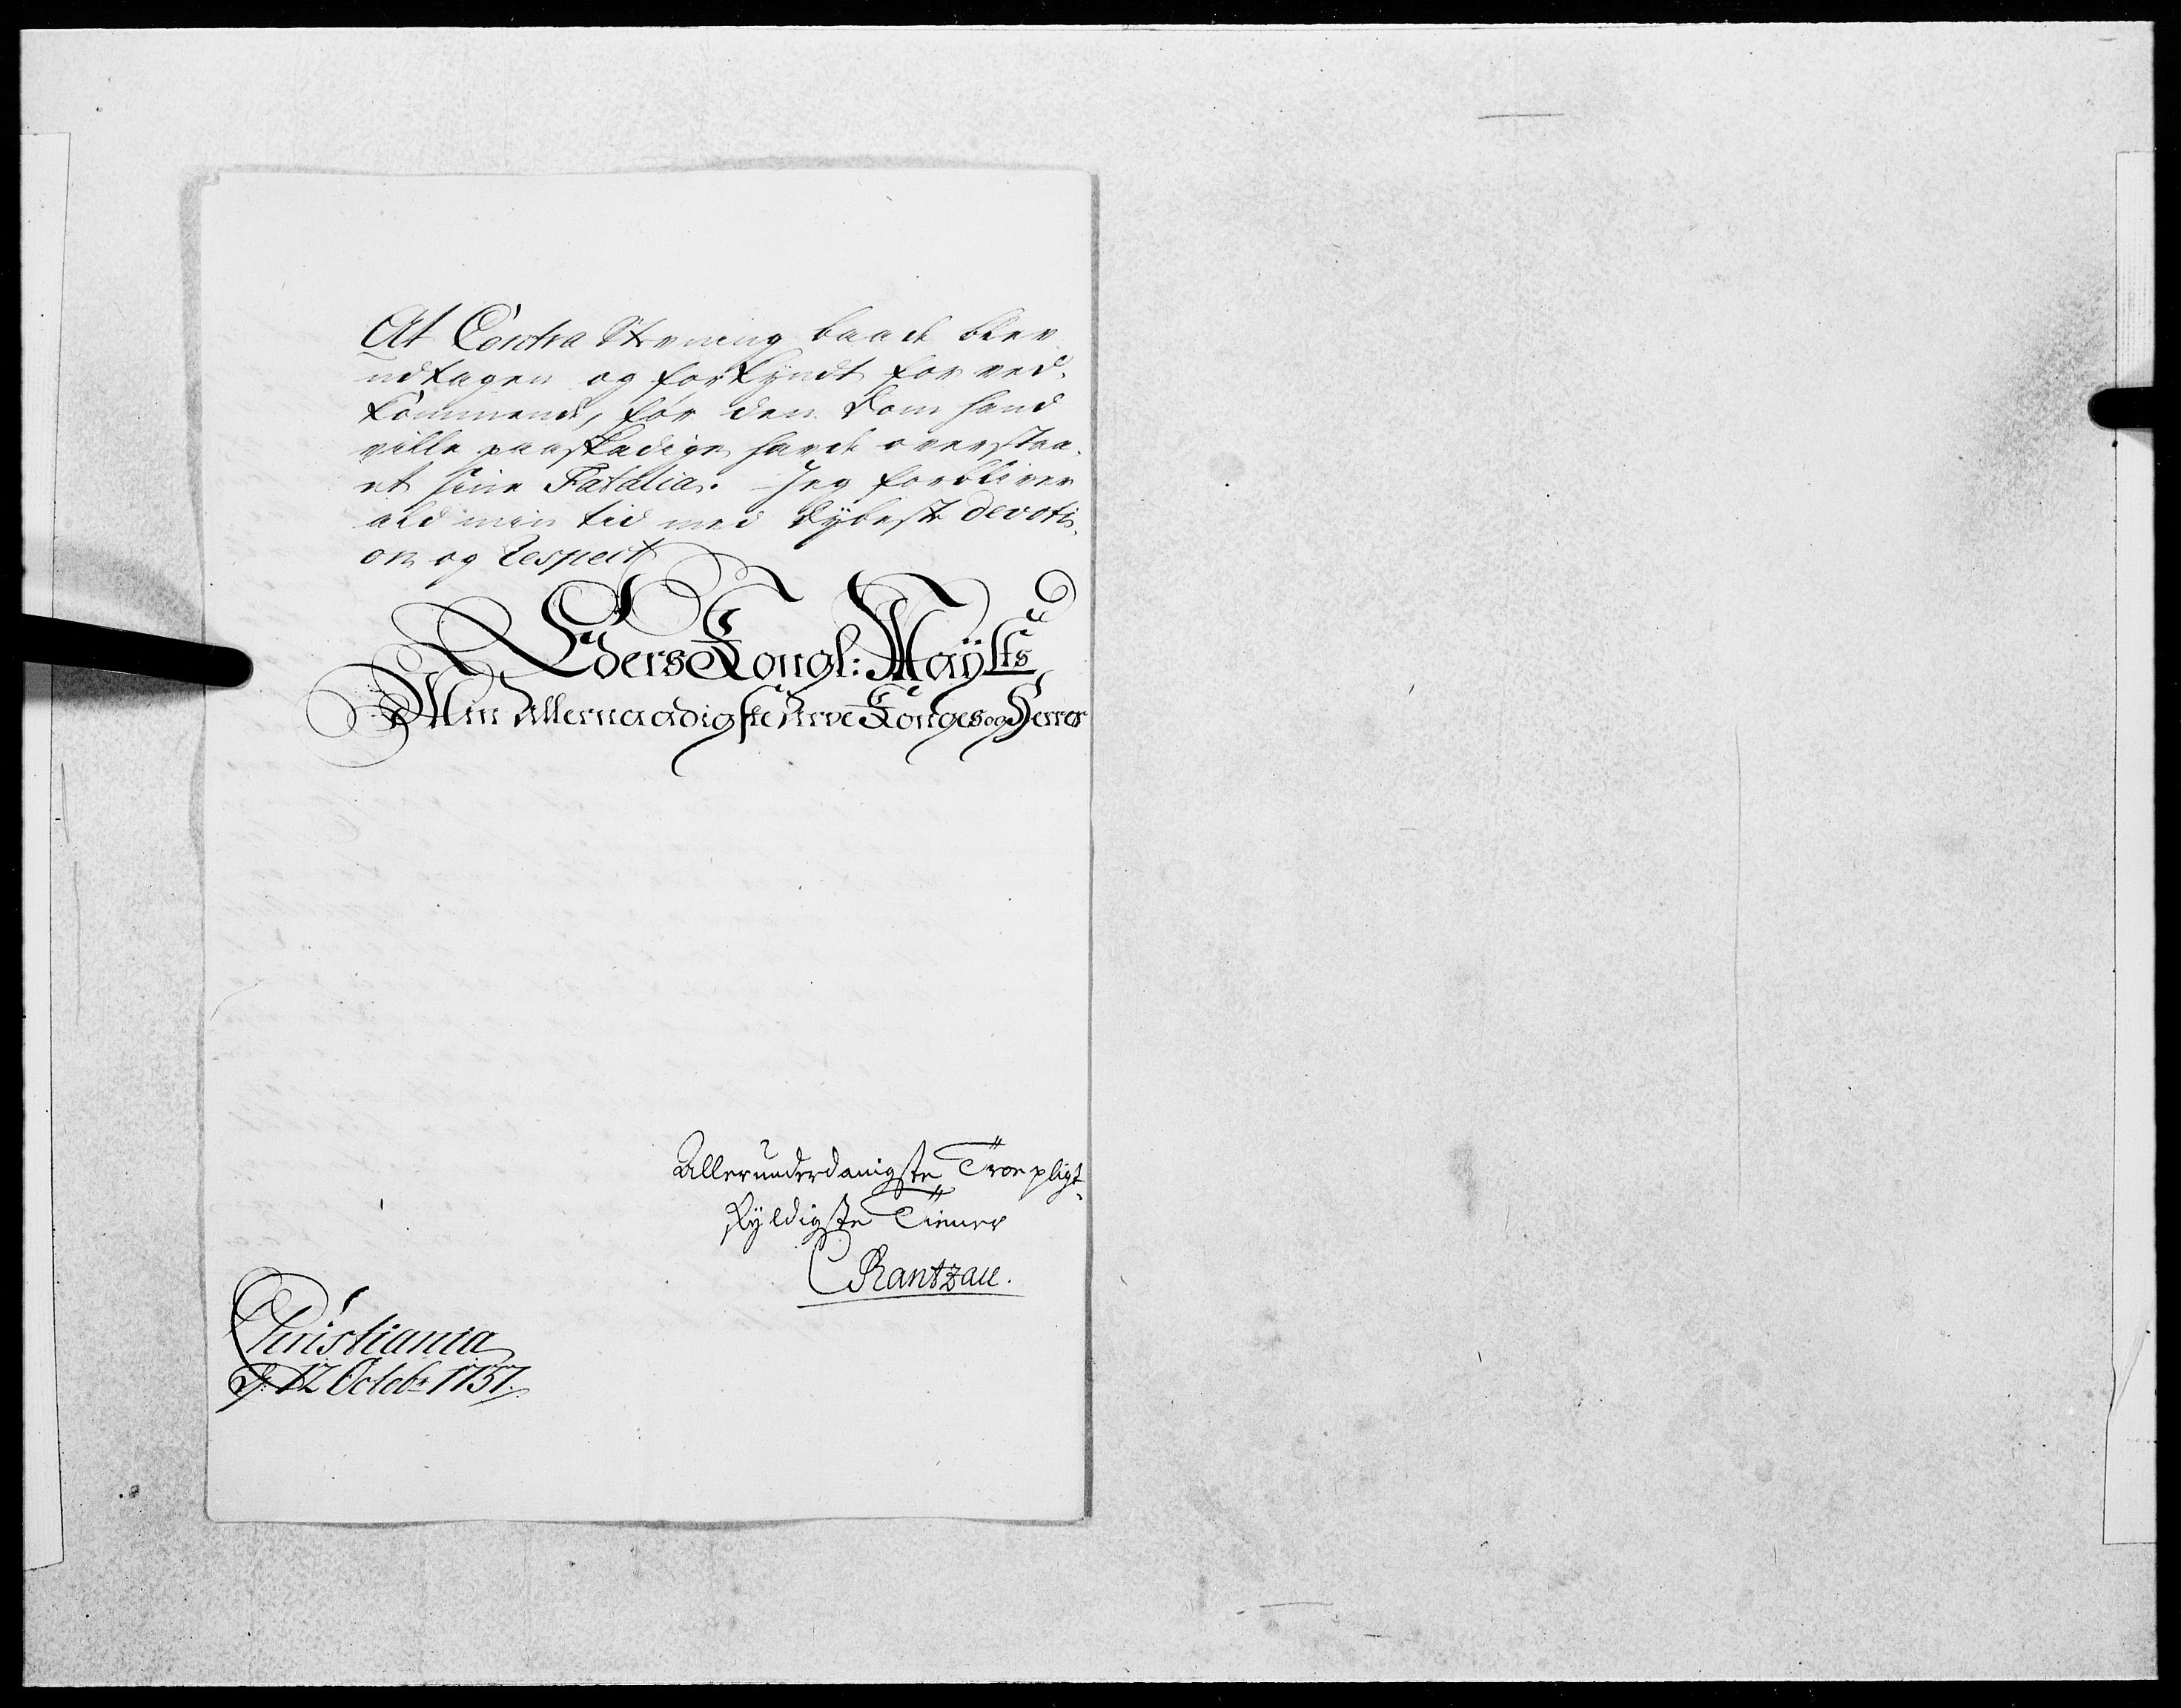 At Contra Stevning baade blev
udtagen og forkyndt for ved-
kommende, før den Dom hand
ville paaskadige havde overstaa-
et sine Fatalia. Jeg forbliver
ald min tid med dybeste devoti-
on og Respect
Eders Kongl: Maÿts
Min Allernaadigste Arve Konges og Herres
Allerunderdanigste Troe pligt-
skyldigste Tiener
CRantzau.
Christiania
d: 12 Octobr 1757.